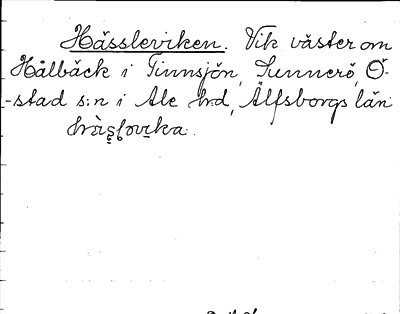 Hässleviken. Vik väster om
Hålbäck i Finnsjön, Sunnerö, Ö-
-stad s:n i Ale hrd, Älfsborgs län